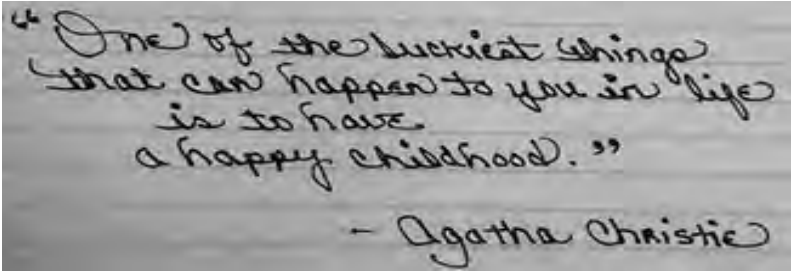 “One of the luckiest things
that can happen to you in life
is to have
a happy childhood.”
- Agatha Christie